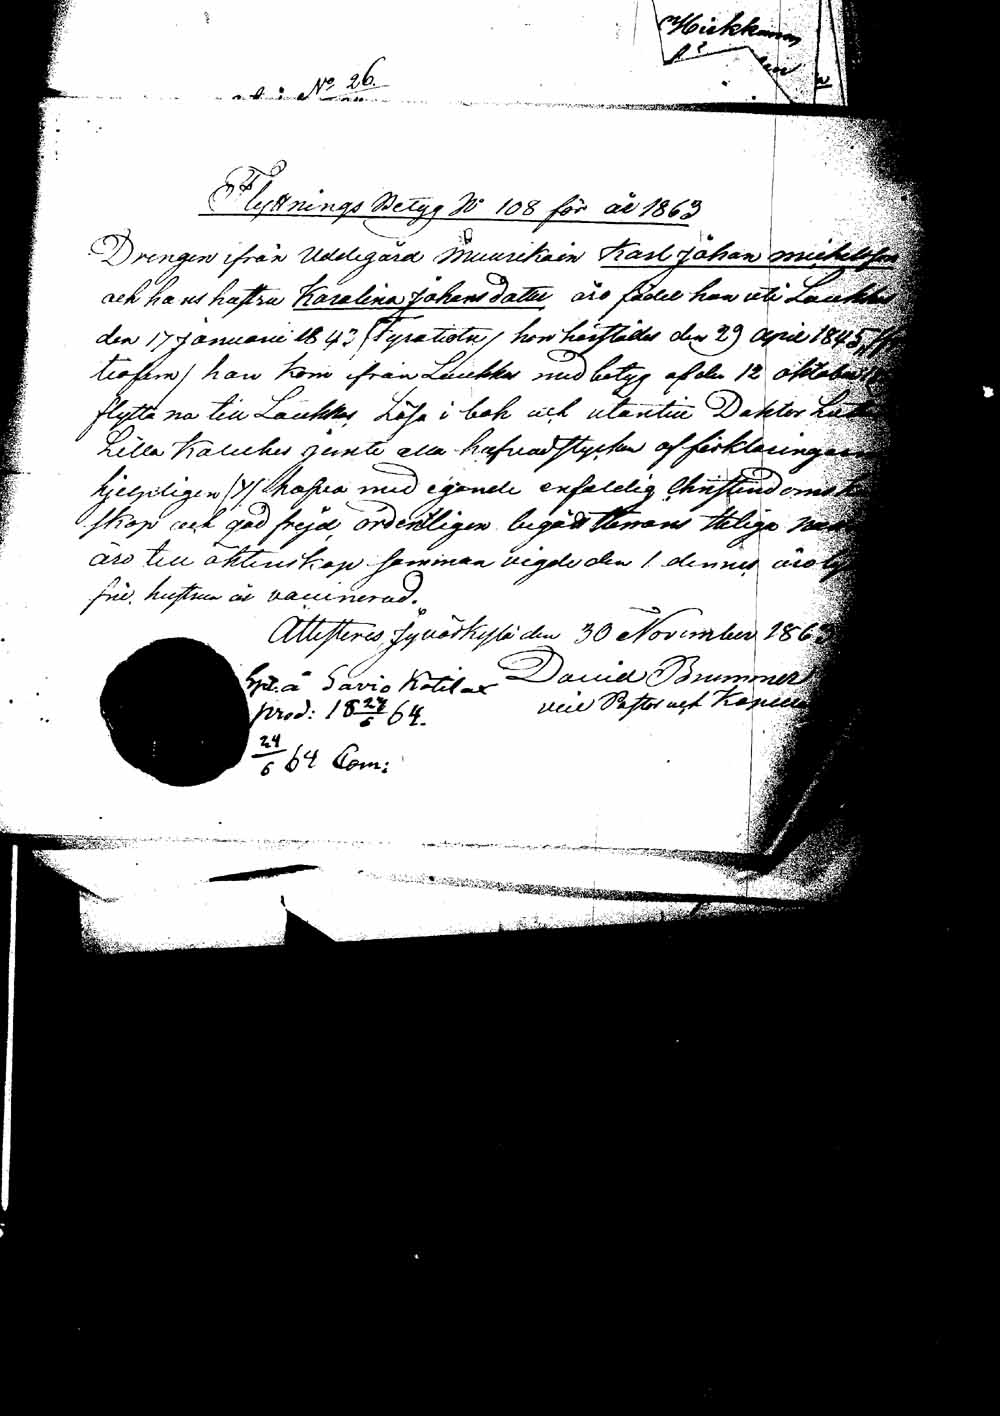 Hiekkanen
No 26.
Flyttnings Betyg No 108 för år 1863
Drengen ifrån Uddegård Muurikain Karl Johan Michelsson
och hans hustru Karolina Johansdotter äro födde han uti Laukkas
den 17 Januarii 1843 han härstädes den 29 April 1845
han kom ifrån Laukkas med betyg af den 12 oktober
flytta nu till Laukkas, Läsa i bok och utantill Doktor
Lilla Kateches jemte alla hufvudstycken af förklaringarne
hjelpligen hafva med egande enfaldig Christendoms
skap och god frejd ordentligen begått Herrans Heliga
äro till äktenskap samman vigde den 1 dennes äro
frie, hustrun är vaccinerad.
Attesteras Jyväskylä den 30 November 1863
David Brummer
vice Pastor och Kapell
å Savio Kotilax
prod: 18 24/6 64.
24/6 64 Com: